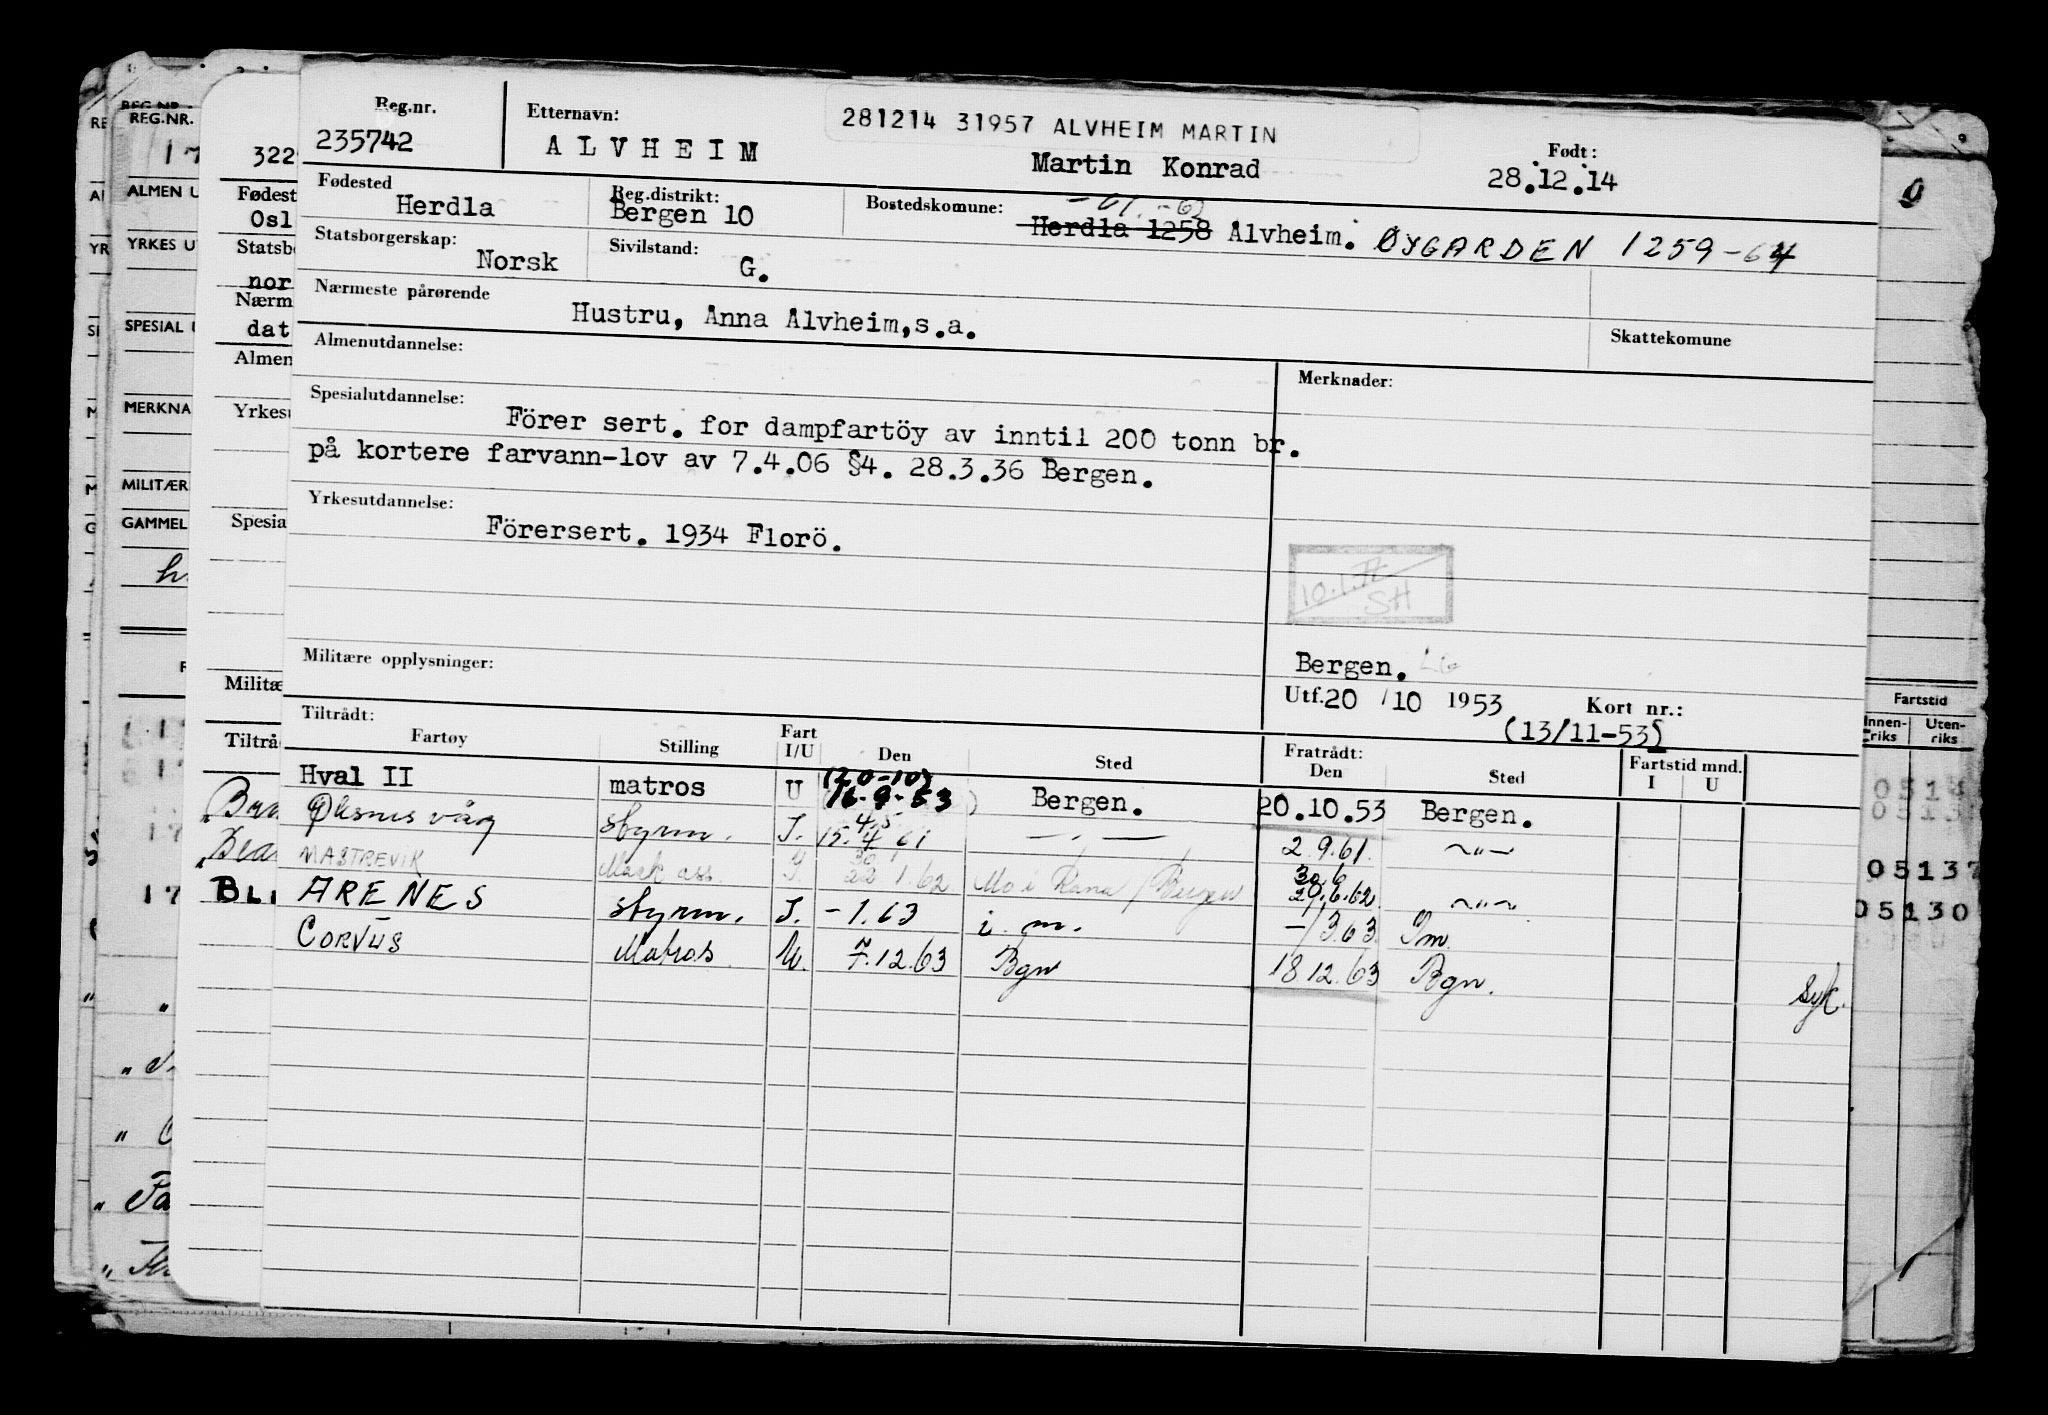 Reg.nr. Etternavn: 281214 31957 ALVHEIM MARTIN Født:
235742 ALVHEIM Martin Konrad 28.12.14
Fødested Reg.distrikt: Bostedskomune: -61.-63
Herdla Bergen 10 Herdla 1258 Alvheim. ØYGARDEN 1259-64
Statsborgerskap: Sivilstand:
Norsk G.
Nærmeste pårørende
Hustru, Anna Alvheim,s.a. Skattekomune
Almenutdannelse: Merknader:
Spesialutdannelse:
Förer sert. for dampfartöy av inntil 200 tonn br.
på kortere farvann-lov av 7.4.06 §4. 28.3.36 Bergen.
Yrkesutdannelse:
Förersert. 1934 Florö.
SH
Militære opplysninger: Bergen.
Utf. 20 / 10 1953 Kort nr.:
(13/11-53)
Tiltrådt:
Fartøy Stilling Fart I/U Den Sted Fratrådt: Den Sted Fartstid mnd. I U
Hval II matros U (20-10) 16-9-53 Bergen. 20.10.53 Bergen.
styrm. I. 4.5 15.4 61 — " — 2.9.61. — " —
MASTREVIK Mask ass. 30 22 1.62 Mo i Rana / Bergen 30.6 29.6.62. — " —
ARENES styrm. I. - 1.63 i. m. -/3.63. Im.
CORVUS Matros U. 7.12.63 Bgn 18 12.63 Bgn. Syk.
REG.NR.
REG.NR.
322
ALMEN U
Fødest
Osl
YRKES U
Statsb
nor
Nærm
SPESIAL U
dat
Almen
MERKNA
Yrkes
MILITÆR
GAMMEL
Spesia
Militæ
Tiltrå
BLI
Fartstid
Innen-riks Uten-riks
0513
0513
05137
05130